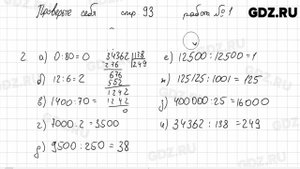 GDZ.RU
Проверьте себя стр 93 работа №1
4
2 а) 0:80=0 34362 | 138 е) 12500:12500=1
276 | 249
б) 12:6=2 676 ж) 125/125:1001=125
552
в) 1400:70= 1242
1242
г) 7000:2=3500 0 з) 400000:25=16000
д) 9500:250=38 и) 34362:138=249
GDZ.RU